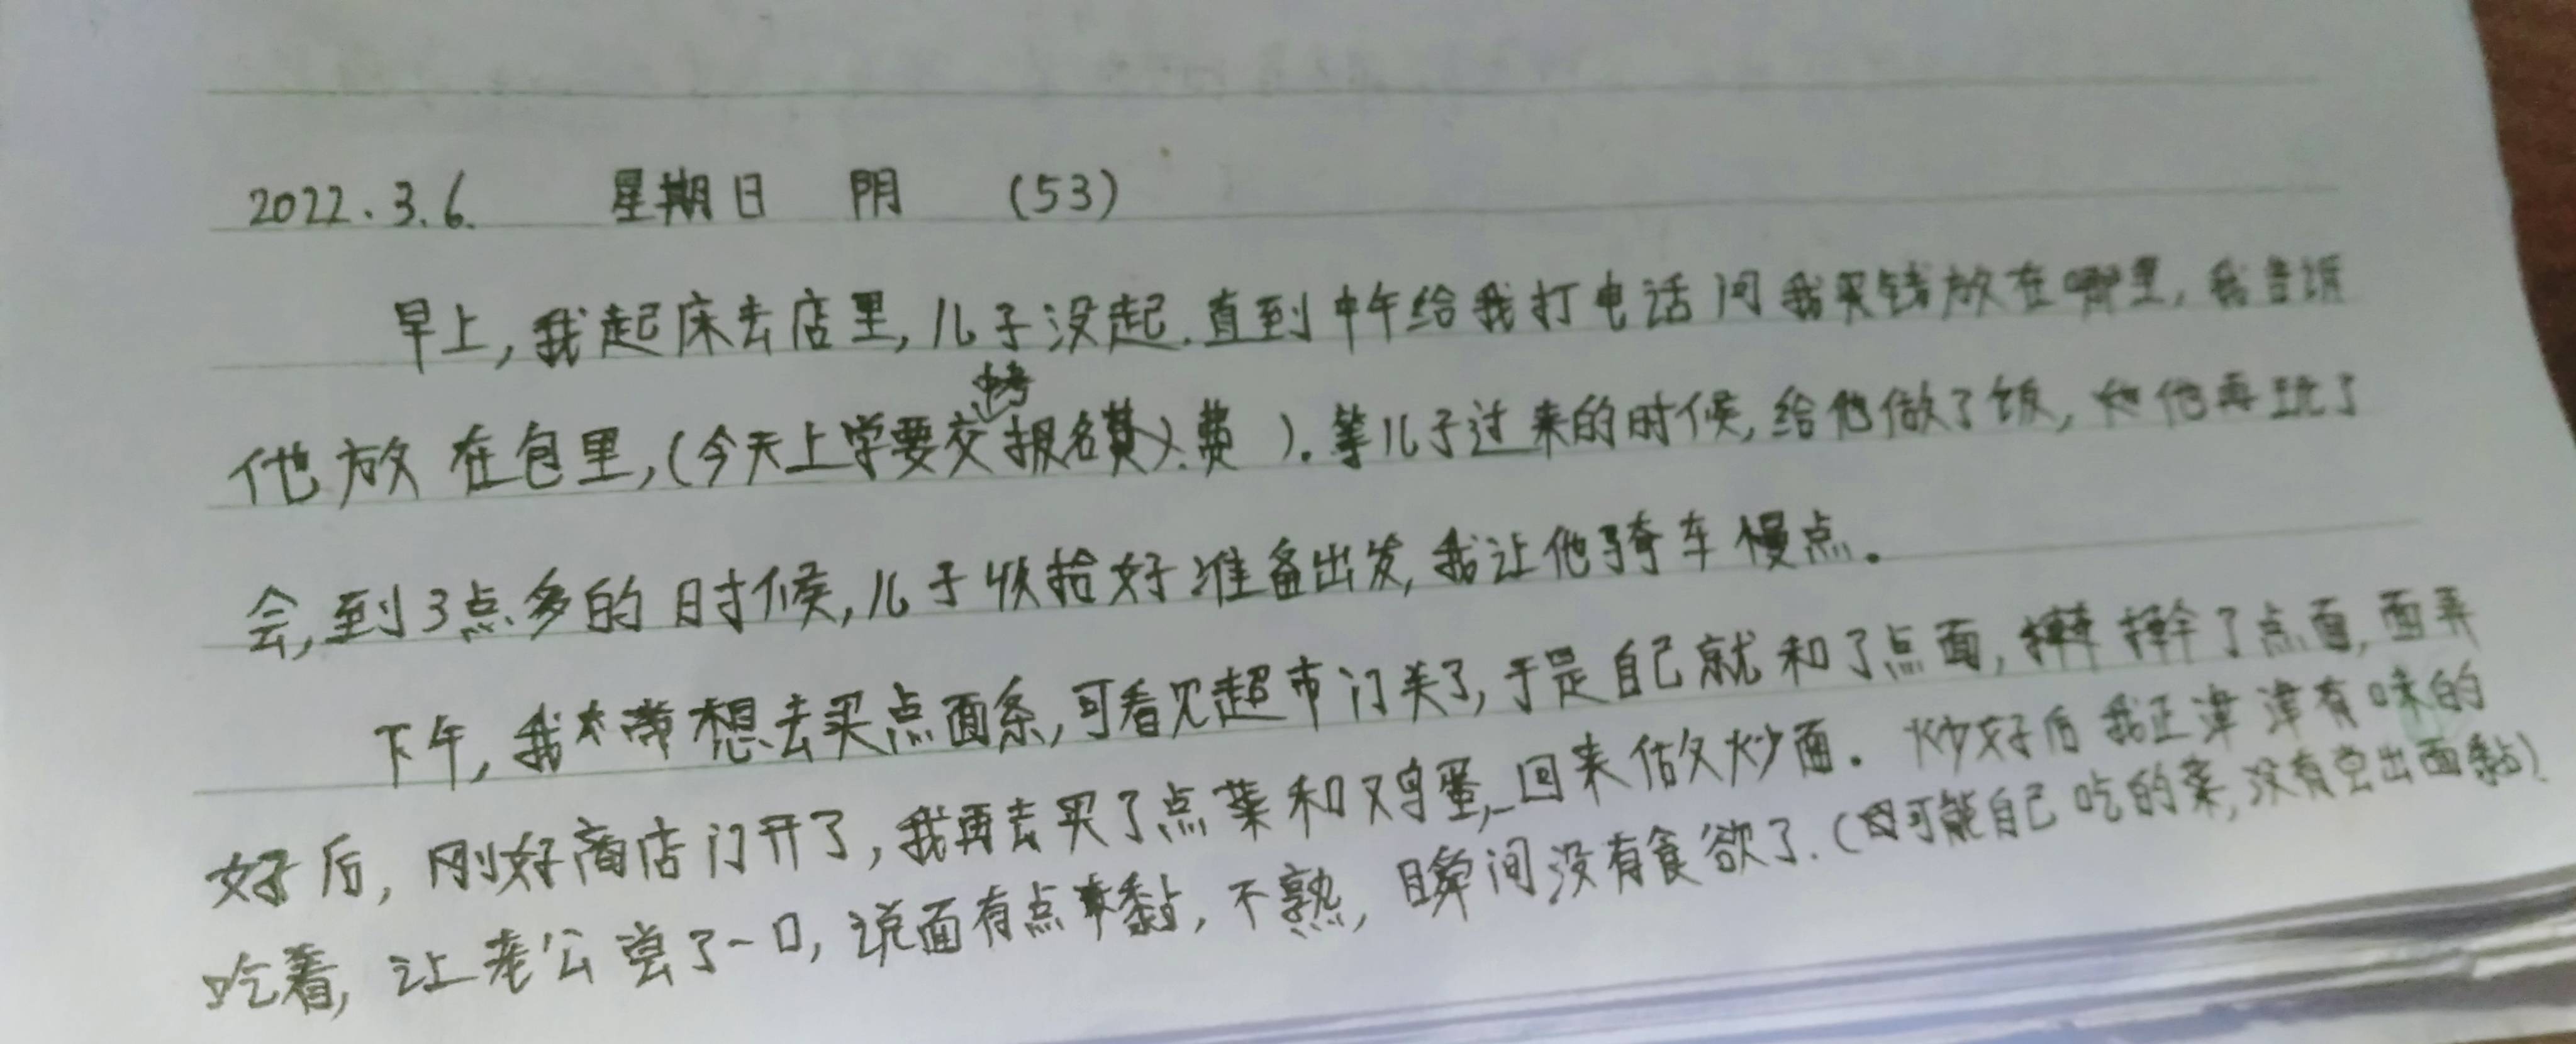 2022.3.6. 星期日 阴 (53)
早上,我起床去店里,儿子没起.直到中午给我打电话问我钱放在哪里,我告诉
中考
他放在包里,(今天上学要交报名费).等儿子过来的时候,给他做了饭,他再玩了
会,到3点多的时候,儿子收拾好准备出发,我让他骑车慢点。
下午,我想去买点面条,可看见超市门关了,于是自己就和了点面,擀了点面,面弄
好后,刚好商店门开了,我再去买了点菜和鸡蛋,回来做炒面.炒好后我正津津有味的
吃着,让老公尝了一口,说面有点黏,不熟,瞬间没有食欲了.(可能自己吃的菜,没有尝出面黏)